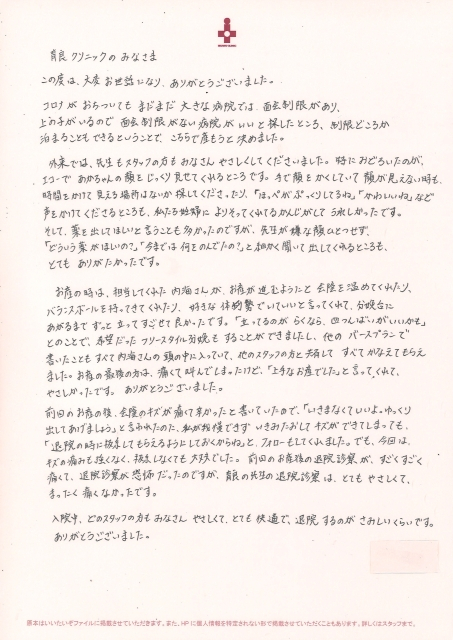 育良クリニックの みなさま
この度は、大変お世話になり、ありがとうございました。
コロナが おちついても まだまだ 大きな病院では 面会制限があり、
上の子がいるので 面会制限がない病院がいいと探したところ、制限どころか
泊まることもできるということで、こちらで産もうと決めました。
外来では、先生もスタッフの方も みなさん やさしくしてくださいました。特におどろいたのが、
エコーで あかちゃんの顔を じっくり見せてくれるところです。手で顔をかくしていて 顔が見えない時も、
時間をかけて 見える場所はないか探してくださったり、「ほっぺがぷっくりしてるね」「かわいいね」など
声をかけてくださるところも、私たち妊婦に よりそってくれてるかんじがして うれしかったです。
そして、薬を出してほしいと言うことも多かったのですが、先生が嫌な顔ひとつせず、
「どういう薬がほしいの?」「今までは 何をのんでたの?」と細かく聞いて 出してくれるところも、
とても ありがたかったです。
お産の時は、担当してくれた 内海さんが、お産が進むようたと 会陰を温めてくれたり、
バランスボールを持ってきてくれたり、好きな 体勢でいていいと言ってくれて、分娩台に
あがるまで ずっと 立ってすごせて良かったです。「立ってるのが らくなら、四つんばいがいいかも」
とのことで、希望だった フリースタイル分娩も することができましたし、他の バースプランで
書いたことも すべて内海さんの 頭の中に入っていて、他のスタッフの方と共有して すべてかなえてもらえ
ました。お産の最後の方は、痛くて 叫んでしまったけど、「上手なお産でした」と言ってくれて、
やさしかったです。 ありがとうございました。
前回のお産の後、会陰のキズが痛くて辛かったと書いていたので、「いきまなくていいよ。ゆっくり
出してあげましょう」と言われたのに、私が我慢できず いきみたおして キズができてしまっても、
「退院の時に抜糸してもらえるようにしておくからね」と、フォローもしてくれました。でも、今回は
キズの痛みも強くなく、抜糸しなくても 大丈夫でした。前回のお産後の退院診察が、すごくすごく
痛くて、退院診察が恐怖だったのですが、育良の先生の退院診察は、とても やさしくて、
まったく 痛くなかったです。
入院中、どのスタッフの方も みなさん やさしくて、とても 快適で、退院 するのが さみしいくらいです。
ありがとうございました。
原本はいいたいぞファイルに掲載させていただきます。また、HPに個人情報を特定されない形で掲載させていただくこともあります。詳しくはスタッフまで。